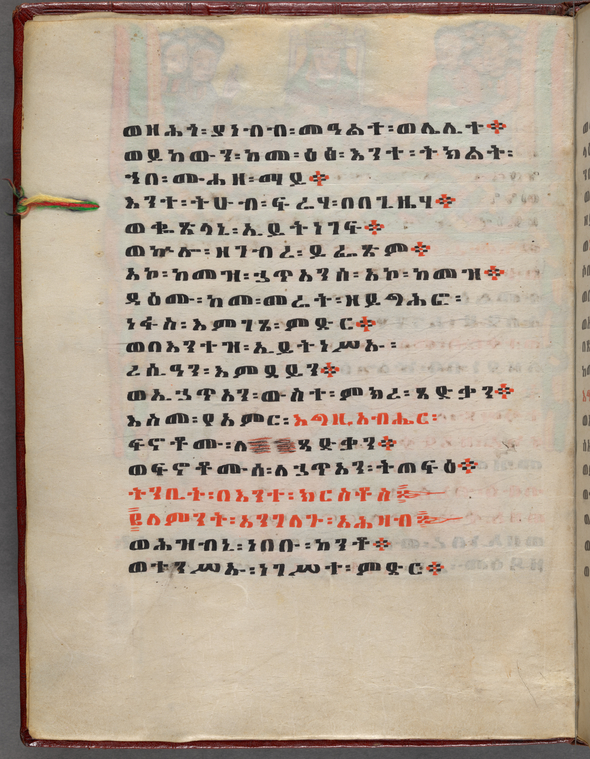 ወዘሕጎ፡ያነብብ፡መዓልተ፡ወሌሊተ፨
ወይከውን፡ከመ፡ዕፅ፡እንተ፡ትክልት፡
ኀበ፡ሙሐዘ፡ማይ፨
እንተ፡ትሁብ፡ፍሬሃ፡በበጊዜሃ፨
ወቈጽላኒ፡ኢይትነገፍ፨
ወኵሎ፡ዘገብረ፡ይፌጽም፨
አኮ፡ከመዝ፡ኃጥአንሰ፡አኮ፡ከመዝ፨
ዳዕሙ፡ከመ፡መሬት፡ዘይግሕፎ፡
ነፋስ፡እምገጸ፡ምድር፨
ወበእንተዝ፡ኢይትነሥኡ፡
ረሲዓን፡እምደይን፨
ወኢኃጥአን፡ውስተ፡ምክረ፡ጻድቃን፨
እስመ፡ያአምር፡እግዚአብሔር፡
ፍኖቶሙ፡ለጻድቃን፨
ወፍኖቶሙሰ፡ለኃጥአን፡ትጠፍዕ፨
ትንቢት፡በእንተ፡ክርስቶስ
፪ለምንት፡አንገለጉ፡አሕዛብ
ወሕዝብኒ፡ነበቡ፡ከንቶ፨
ወተንሥኡ፡ነገሥተ፡ምድር፨